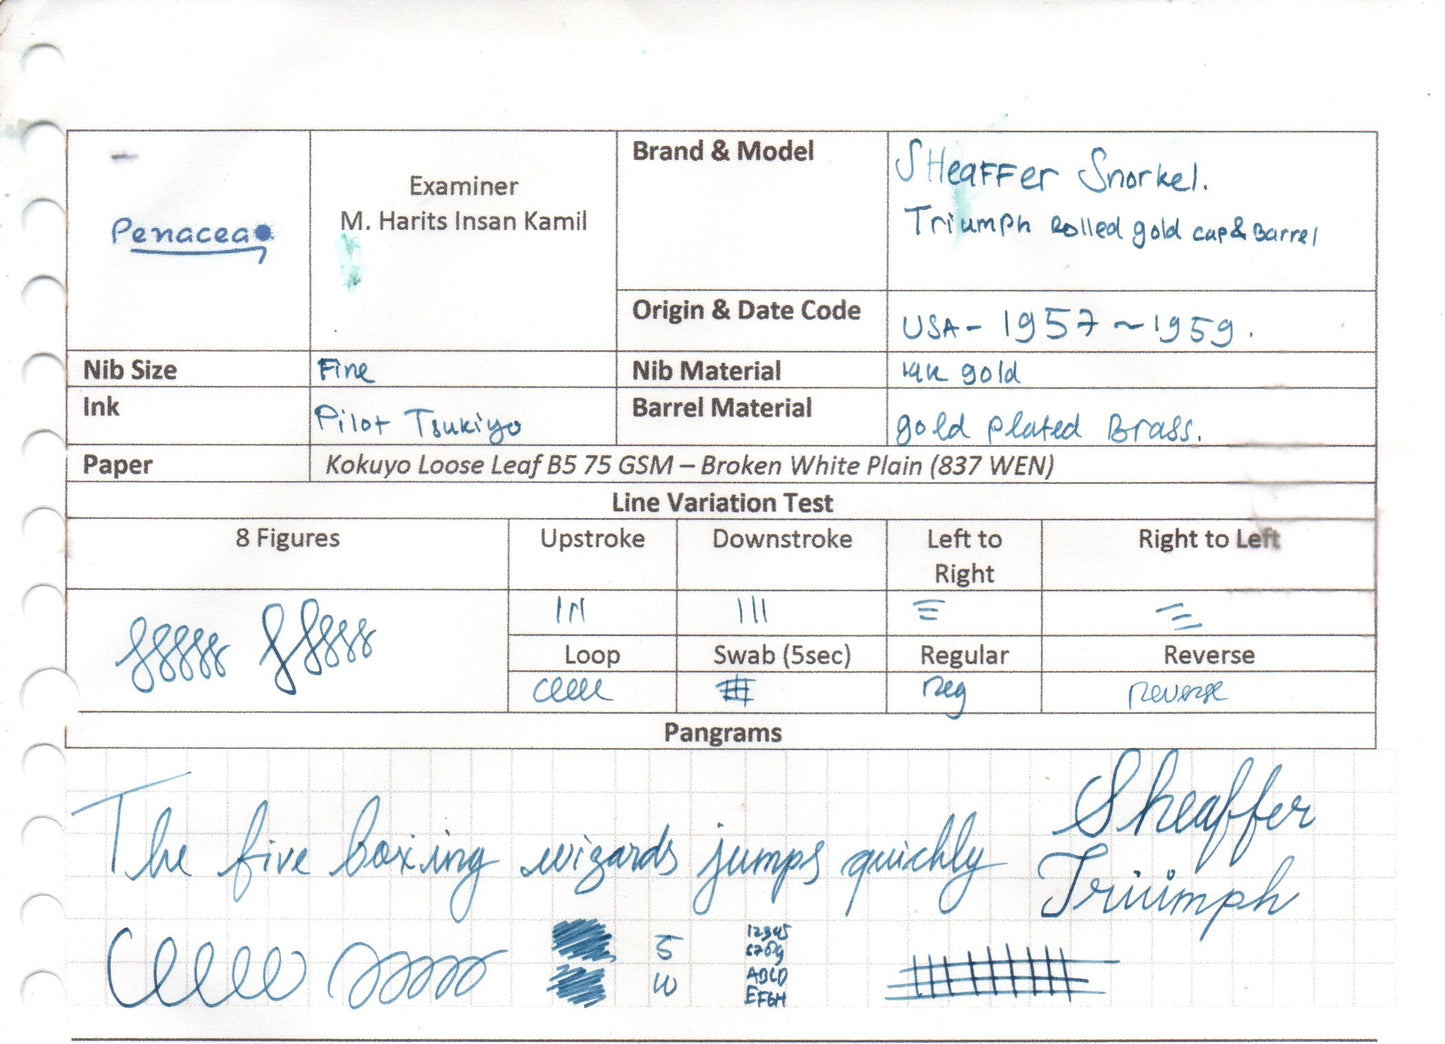 Penacea
Examiner
M. Harits Insan Kamil
Brand & Model
SHeaFFer Snorkel.
Triumph Rolled gold cap & Barrel
Origin & Date Code
USA - 1957 ~ 1959.
Nib Size
Fine
Nib Material
14K gold
Ink
Pilot Tsukiyo
Barrel Material
gold plated Brass.
Paper
Kokuyo Loose Leaf B5 75 GSM – Broken White Plain (837 WEN)
Line Variation Test
8 Figures
Upstroke
Downstroke
Left to
Right
Right to Left
Loop
Swab (5sec)
Regular
Reverse
Reg
Reverse
Pangrams
The five boxing wizards jumps quickly
Sheaffer
Triumph
5
10
12345
6789
ABCD
EFGH